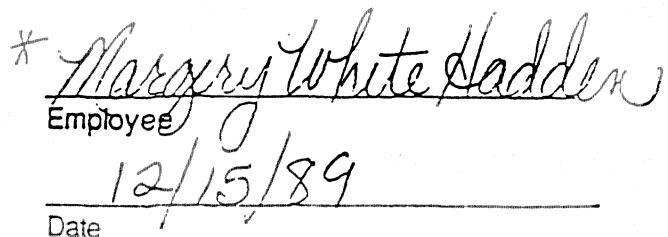 * Margery White Hadden
Employee
12/15/89
Date